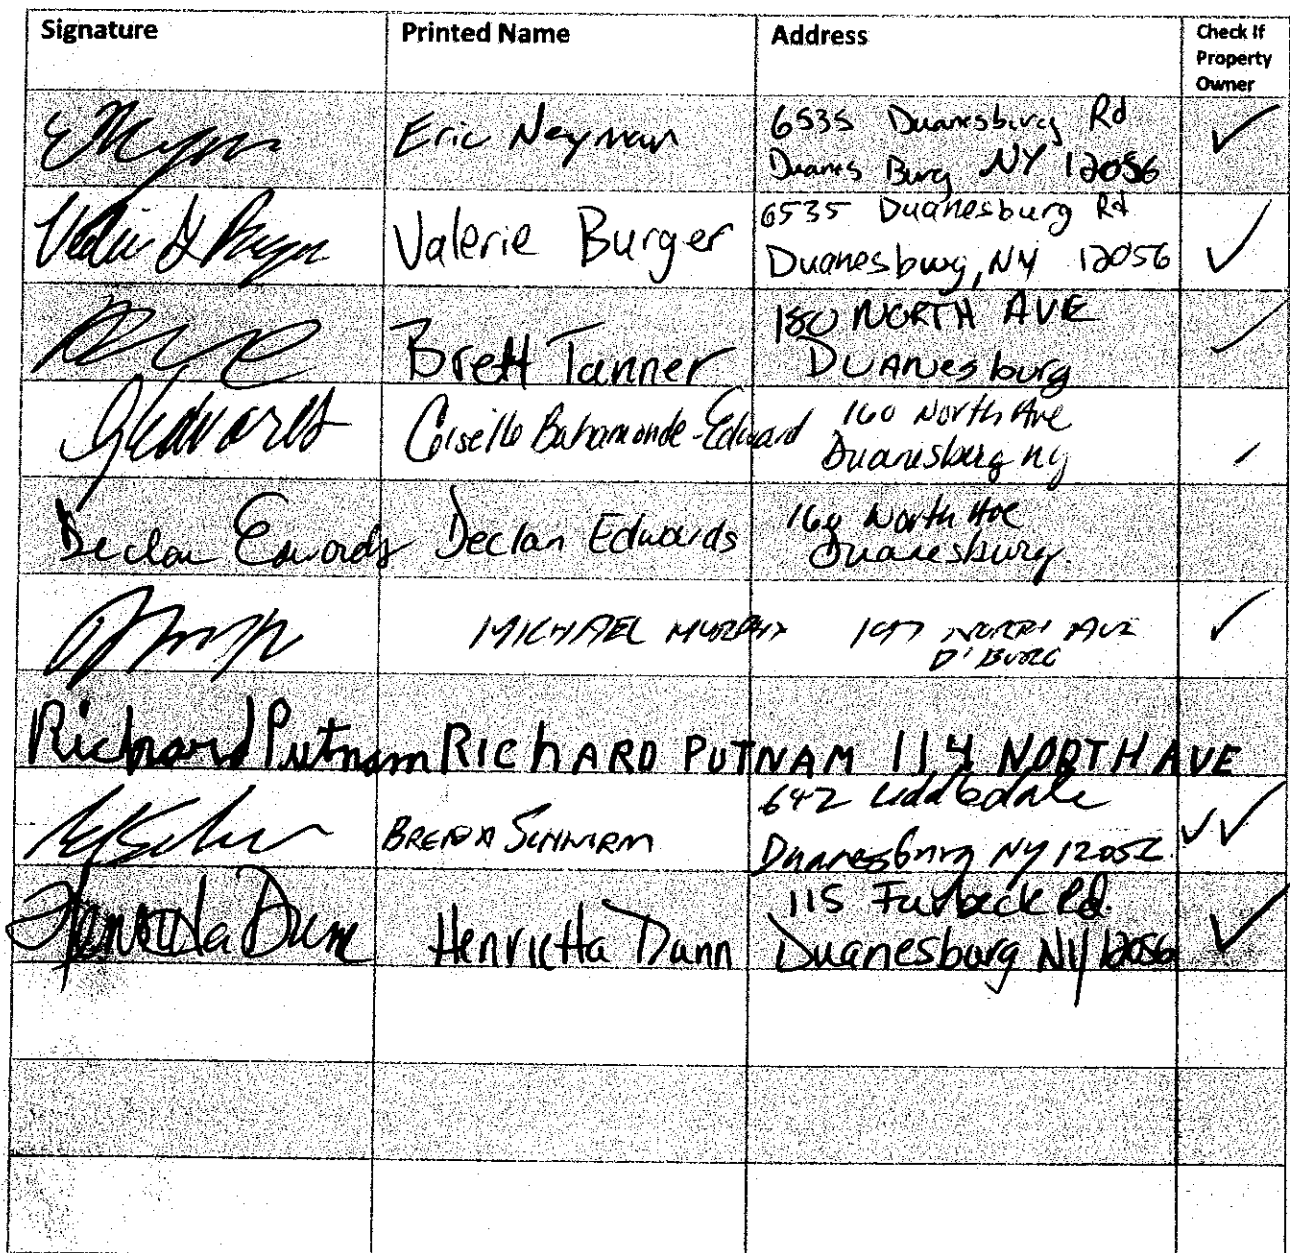 Signature Printed Name Address Check If
Property
Owner
Eric Neyman 6535 Duanesburg Rd
Duanes Burg NY 12056
Valerie Burger 6535 Duanesburg Rd
Duanesburg, NY 12056
Brett Tanner 180 NORTH AVE
DUANesburg
GEdwards Bahamonde-Edward 160 North Ave
Duanesburg ny
Declan Edwards Declan Edwards 160 North Ave
Duanesburg.
MICHAEL MURPHY NORTH AVE
D'BURG
Richard Putnam RICHARD PUTNAM 114 NORTH AVE
BRENDA 642
Duanesburg NY
Henrietta Dunn 115 Furbeck Rd.
Duanesburg NY 12056